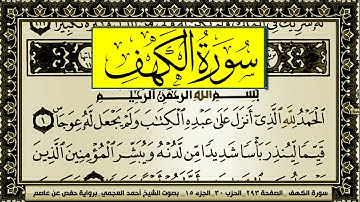 سورة الكهف
بسم الله الرحمن الرحيم
الْحَمْدُ لِلَّهِ الَّذِي أَنزَلَ عَلَىٰ عَبْدِهِ الْكِتَابَ وَلَمْ يَجْعَل لَّهُ عِوَجًا ١
قَيِّمًا لِّيُنذِرَ بَأْسًا شَدِيدًا مِّن لَّدُنْهُ وَيُبَشِّرَ الْمُؤْمِنِينَ الَّذِينَ
سورة الكهف _ الصفحة ٢٩٣ _ الحزب ٣٠ _ الجزء ١٥ _ بصوت الشيخ أحمد العجمي _ برواية حفص عن عاصم